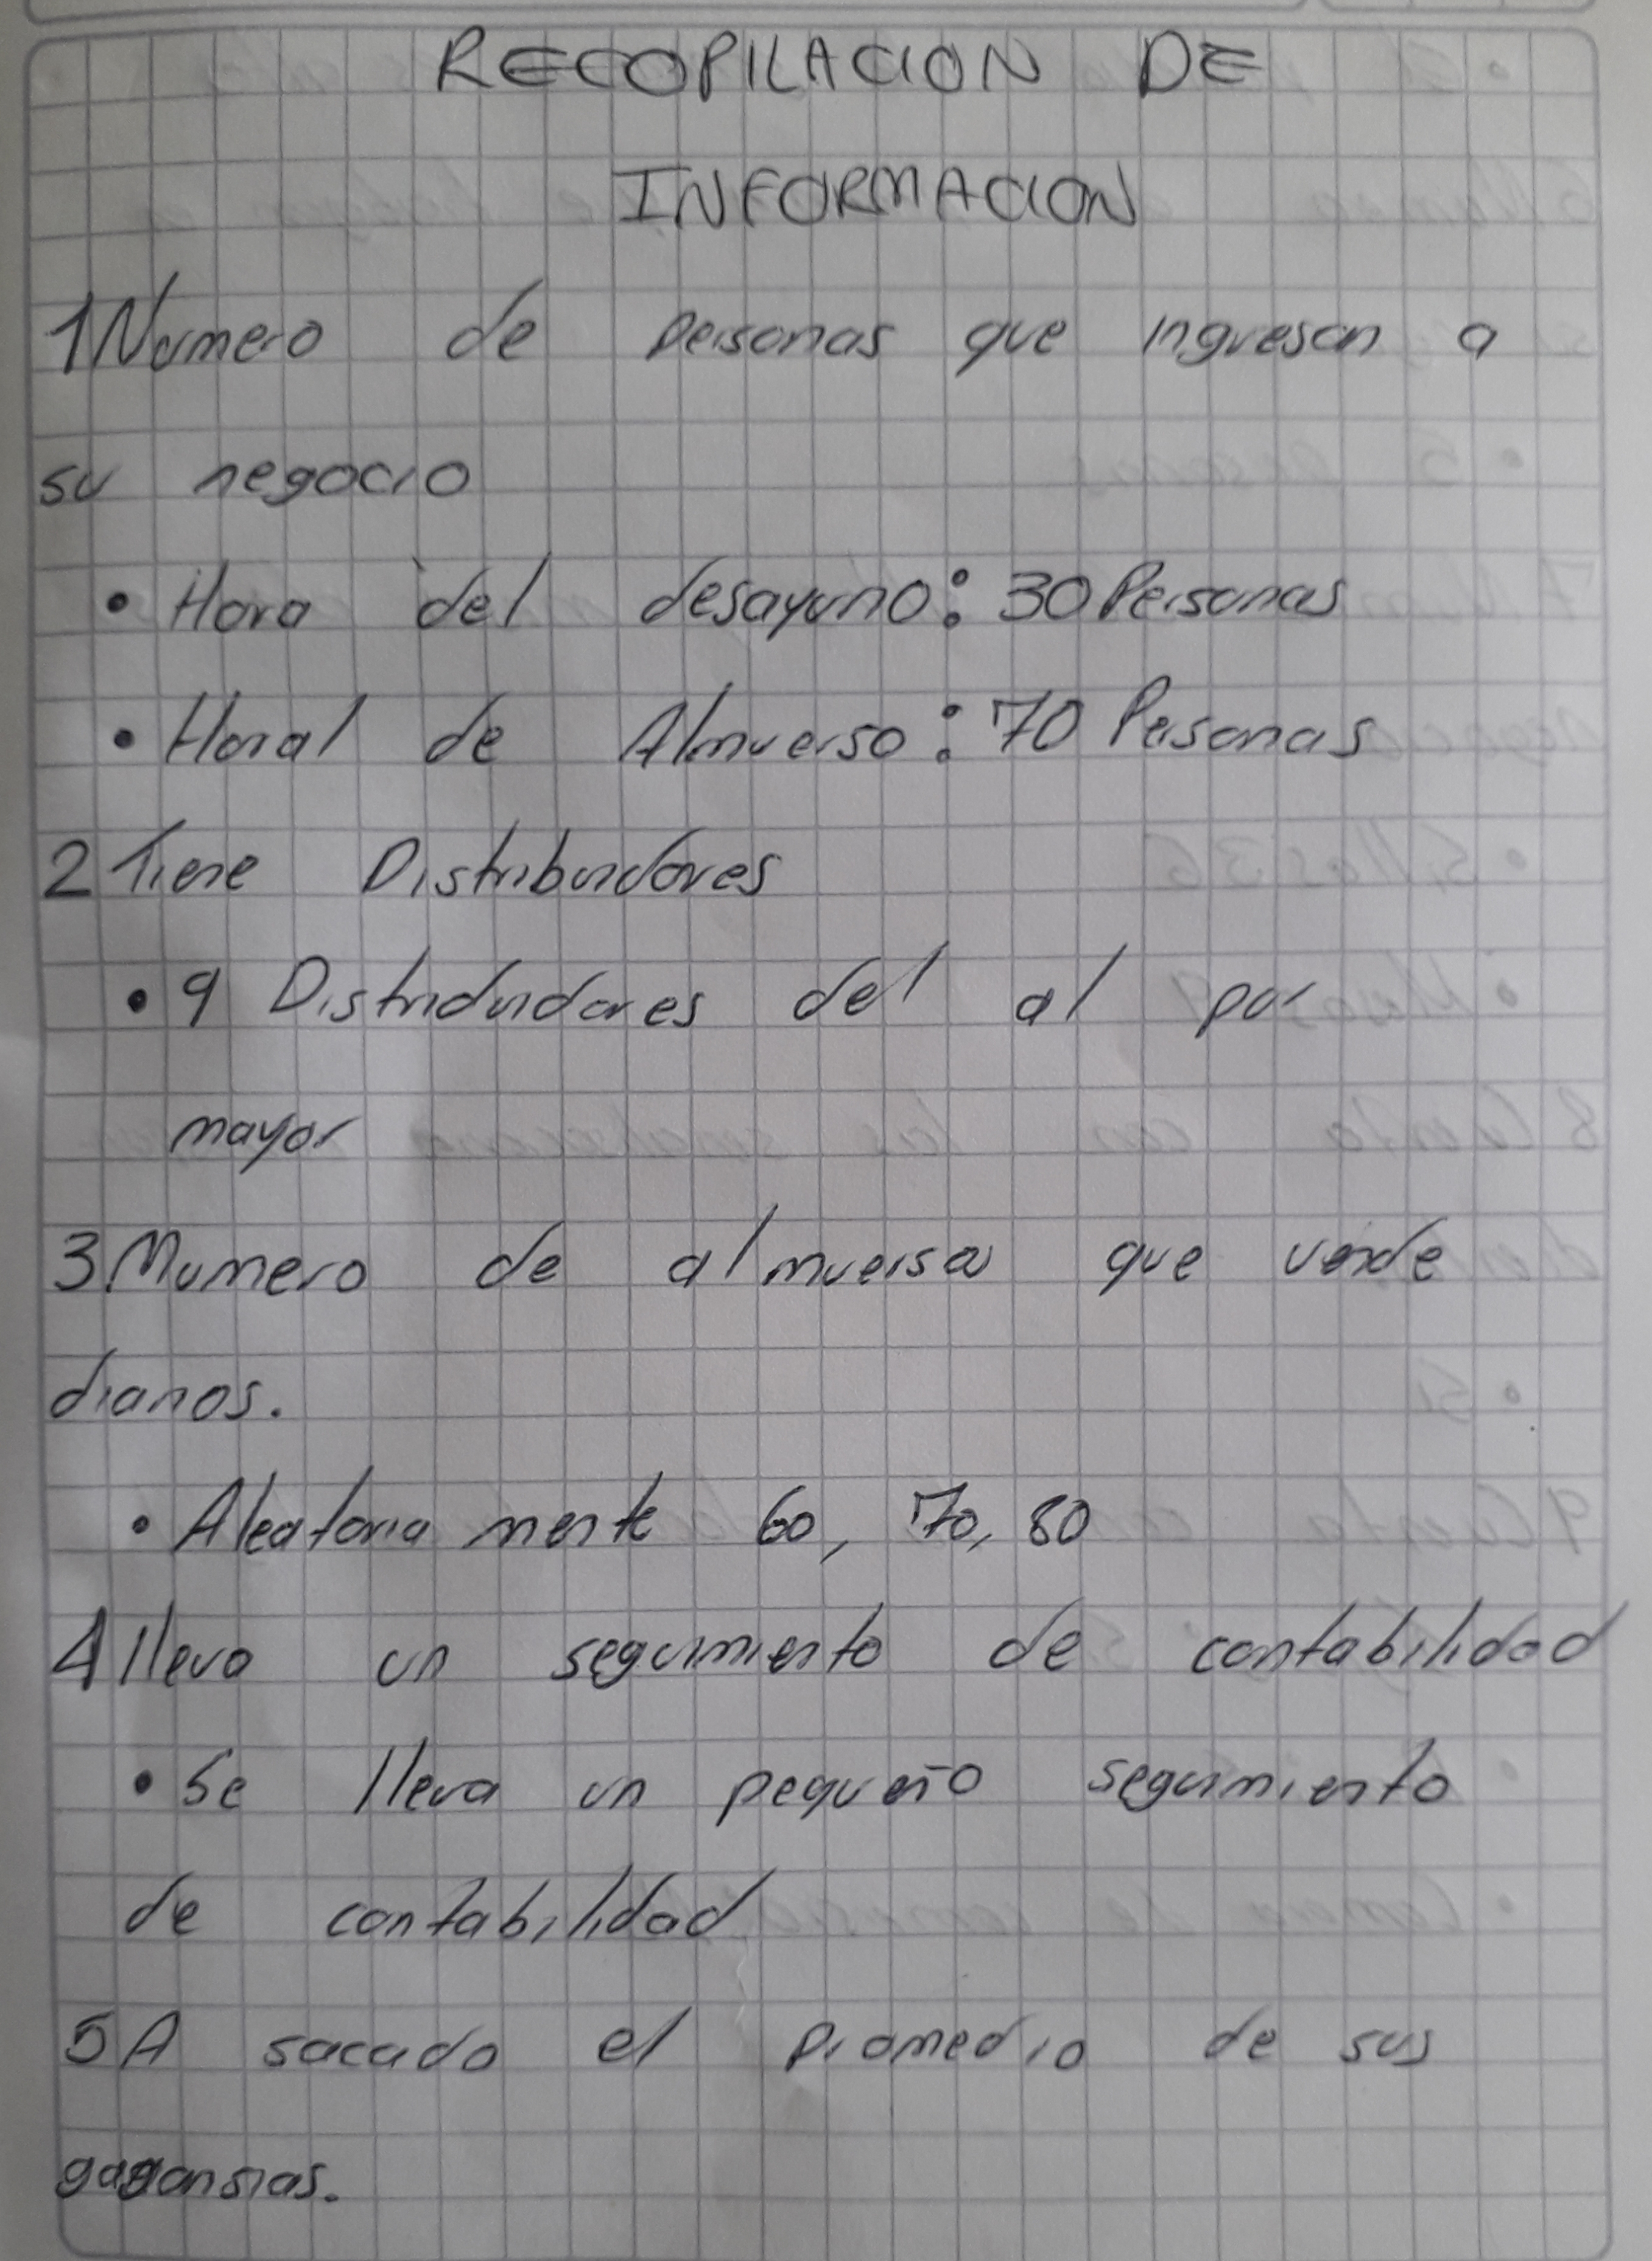 RECOPILACION DE
INFORMACION
1 Numero de personas que ingresan a
su negocio
• Hora del desayuno: 30 Personas
• Horal de Almuerso: 70 Personas
2 Tiene Distribuidores
• 9 Distridudores del al por
mayor
3 Numero de almuersa que vende
diarios.
• Aleatoria mente 60, 70, 80
4 lleva un seguimiento de contabilidad
• Se lleva un pequeño seguimiento
de contabilidad
5 A sacado el promedio de sus
gagansias.